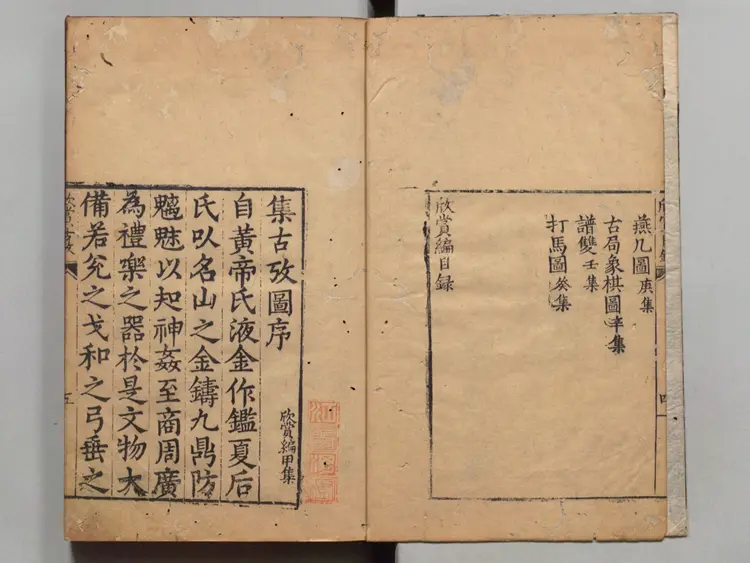 四
燕几圖庚集
古局象棋圖辛集
譜雙壬集
打馬圖癸集
欣賞編目録
集古攷圖序
欣賞編甲集
自黄帝氏液金作鑑夏后
氏㕥名山之金鑄九鼎防
魑魅以知神姦至商周廣
為禮樂之器於是文物大
備若兊之戈和之弓垂之
五